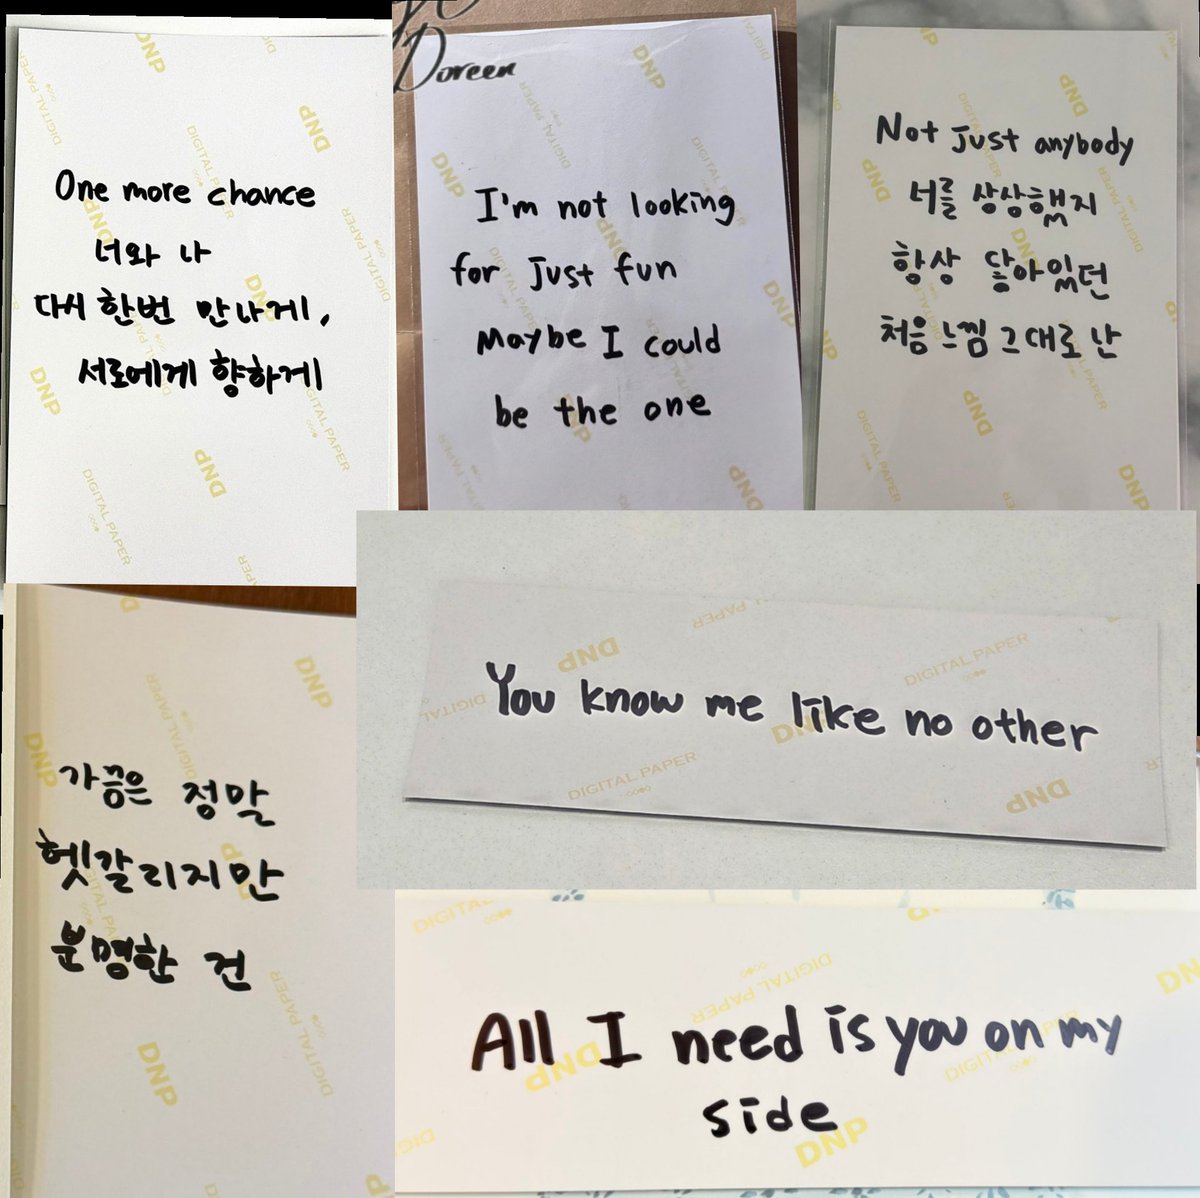 One more chance
너와 나
다시 한번 만나게,
서로에게 향하게
Doreen
I'm not looking
for just fun
Maybe I could
be the one
Not just anybody
너를 상상했지
항상 닿아있던
처음 느낌 그대로 난
You know me like no other
가끔은 정말
헷갈리지만
분명한 건
All I need is you on my
side
DNP
DIGITAL PAPER